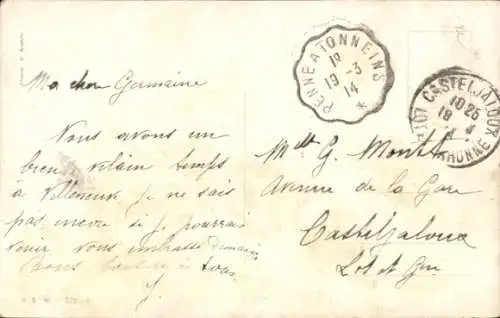 Ma chère Germaine
Nous avons un
bien vilain temps
à Villeneuve je ne sais
pas encore si je pourrais
venir vous embrasser demain
Bons baisers à tous.
J.
PENNE A TONNEINS
1º
19 - 3
14
*
CASTELJALOUX
10 25
GARONNE
Mlle G.
Avenue de la Gare
Casteljaloux
Lot et Gne